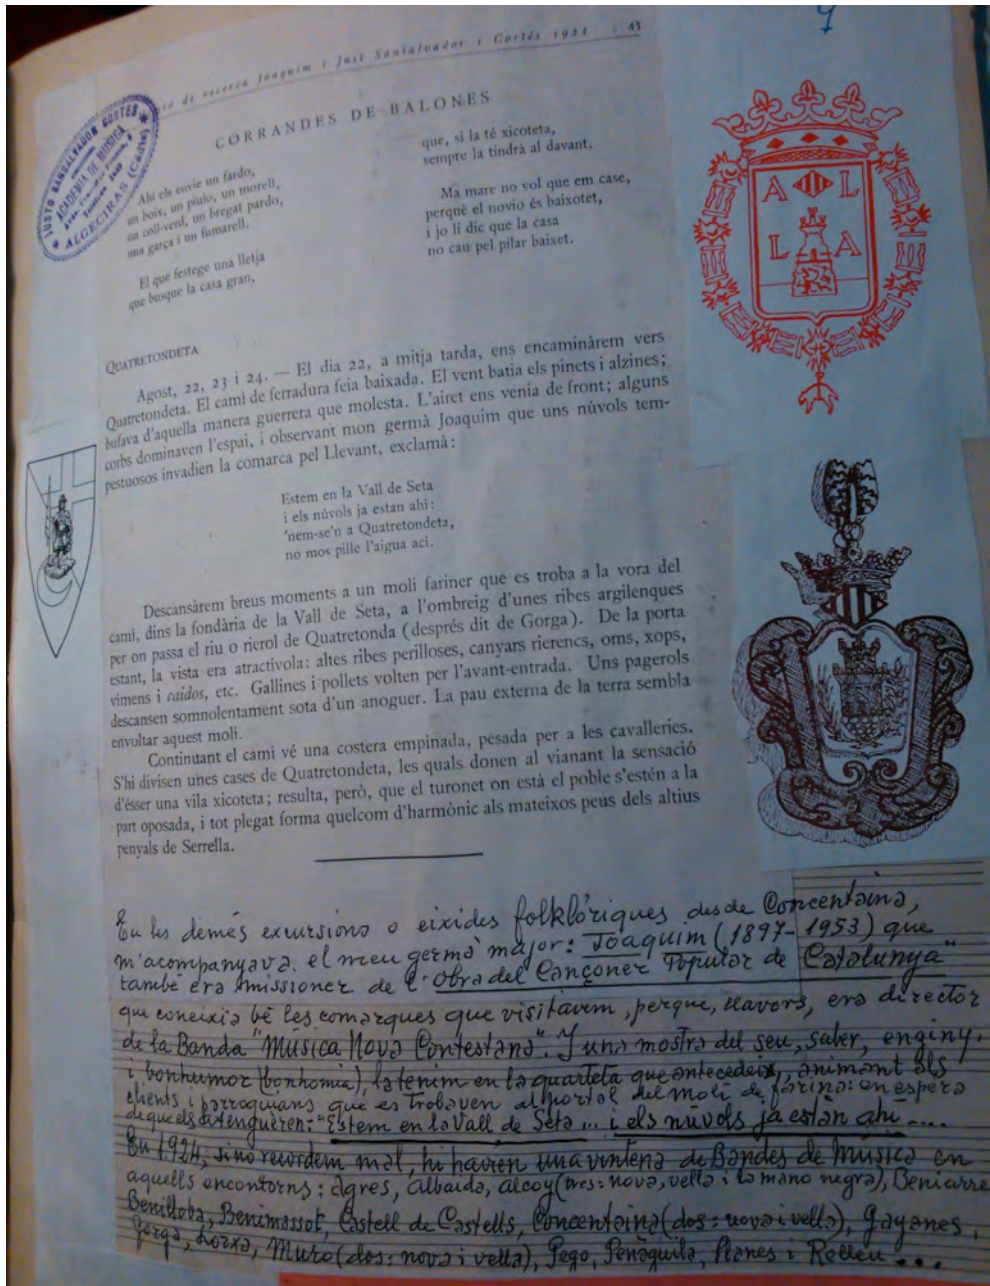 9
de recerca Joaquim i Just Sansalvador i Cortés 1924 43
JUSTO SANSALVADOR CORTES
ACADEMIA DE MUSICA
ALGECIRAS (Cádiz)
CORRANDES DE BALONES
Ahi els envie un fardo,
un boix, un piulo, un morell,
un coll-verd, un bregat pardo,
una garça i un fumarell.
El que festege una lletja
que busque la casa gran,
que, si la té xicoteta,
sempre la tindrà al davant.
Ma mare no vol que em case,
perquè el novio és baixotet,
i jo li dic que la casa
no cau pel pilar baixet.
A L
L A
QUATRETONDETA
Agost, 22, 23 i 24. — El dia 22, a mitja tarda, ens encaminàrem vers
Quatretondeta. El camí de ferradura feia baixada. El vent batia els pinets i alzines;
bufava d'aquella manera guerrera que molesta. L'airet ens venia de front; alguns
corbs dominaven l'espai, i observant mon germà Joaquim que uns núvols tem-
pestuosos invadien la comarca pel Llevant, exclamà:
Estem en la Vall de Seta
i els núvols ja estan ahi:
'nem-se'n a Quatretondeta,
no mos pille l'aigua ací.
Descansàrem breus moments a un molí fariner que es troba a la vora del
camí, dins la fondària de la Vall de Seta, a l'ombreig d'unes ribes argilenques
per on passa el riu o rierol de Quatretonda (després dit de Gorga). De la porta
estant, la vista era atractívola: altes ribes perilloses, canyars rierencs, oms, xops,
vímens i caidos, etc. Gallines i pollets volten per l'avant-entrada. Uns pagerols
descansen somnolentament sota d'un anoguer. La pau externa de la terra sembla
envoltar aquest molí.
Continuant el camí vé una costera empinada, pesada per a les cavalleries.
S'hi divisen unes cases de Quatretondeta, les quals donen al vianant la sensació
d'ésser una vila xicoteta; resulta, però, que el turonet on està el poble s'estén a la
part oposada, i tot plegat forma quelcom d'harmònic als mateixos peus dels altius
penyals de Serrella.
En les demés excursions o eixides folklòriques desde Concentaina,
m'acompanyava el meu germà major: Joaquim (1897-1953) que
també era missioner de l'"Obra del Cançoner Popular de Catalunya"
que coneixia bé les comarques que visitavem, perque, llavors, era director
de la Banda "Musica Nova Contestana". I una mostra del seu, saber, enginy,
i bonhumor (bonhomia), la tenim en la quarteta que antecedeix, animant als
clients i parroquians que es trobaven al portal del moli de farina: en espera
de que els atengueren: "Estem en la Vall de Seta ... i els núvols ja están ahí ....
En 1.924, si no recordem mal, hi havien una vintena de Bandes de Música en
aquells encontorns: Agres, Albaida, Alcoy (tres: nova, vella i la mano negra), Beniarre
Benilloba, Benimassot, Castell de Castells, Concentaina (dos: nova i vella), Gayanes,
Gorga, Lorxa, Muro (dos: nova i vella), Pego, Penàguila, Planes i Relleu ...